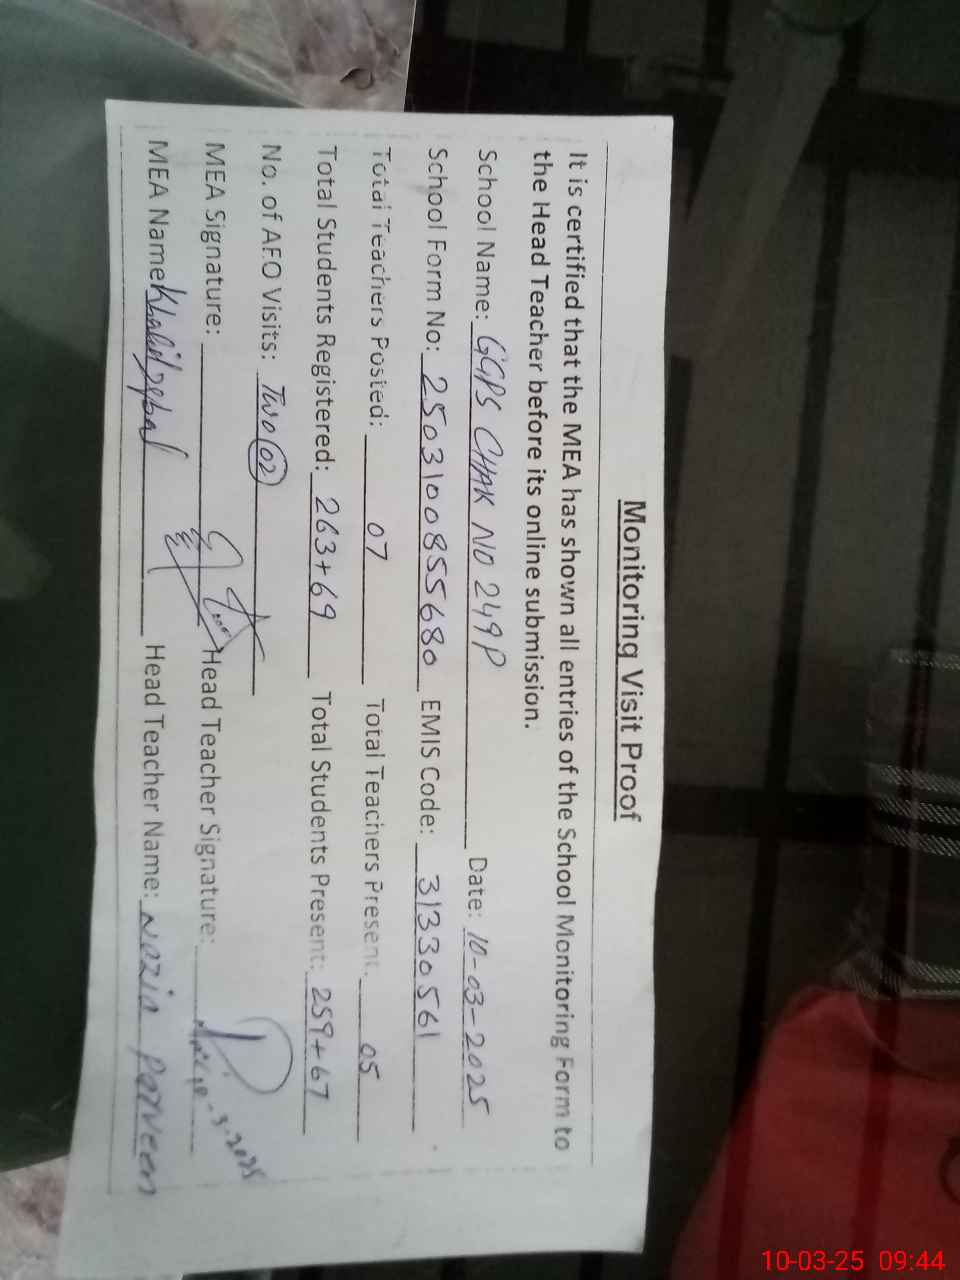 Monitoring Visit Proof
It is certified that the MEA has shown all entries of the School Monitoring Form to
the Head Teacher before its online submission.
School Name: GGPS CHAK NO 249P Date: 10-03-2025
School Form No: 2503100855680 EMIS Code: 31330561
Total Teachers Posted: 07 Total Teachers Present: 05
Total Students Registered: 263+69 Total Students Present: 259+67
No. of AEO Visits: Two (02)
MEA Signature: Head Teacher Signature:
MEA Name Khalid Iqbal Head Teacher Name: Nazia Parveen
10-03-25 09:44